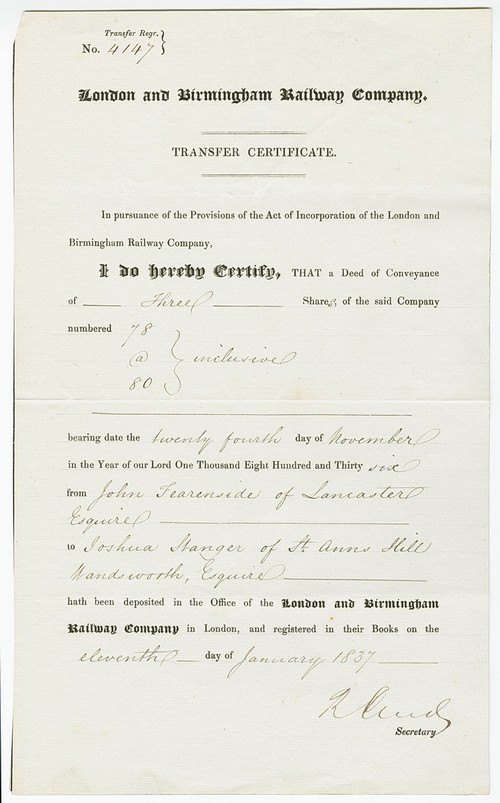 Transfer Regr.
No. 4147
London and Birmingham Railway Company.
TRANSFER CERTIFICATE.
In pursuance of the Provisions of the Act of Incorporation of the London and
Birmingham Railway Company,
I do hereby Certify, THAT a Deed of Conveyance
of Three Shares, of the said Company
numbered 78
@ inclusive
80
bearing date the twenty fourth day of November
in the Year of our Lord One Thousand Eight Hundred and Thirty six
from John Fearenside of Lancaster
Esquire
to Joshua Stanger of St. Anns Hill
Wandsworth, Esquire
hath been deposited in the Office of the London and Birmingham
Railway Company in London, and registered in their Books on the
eleventh day of January 1837
Secretary